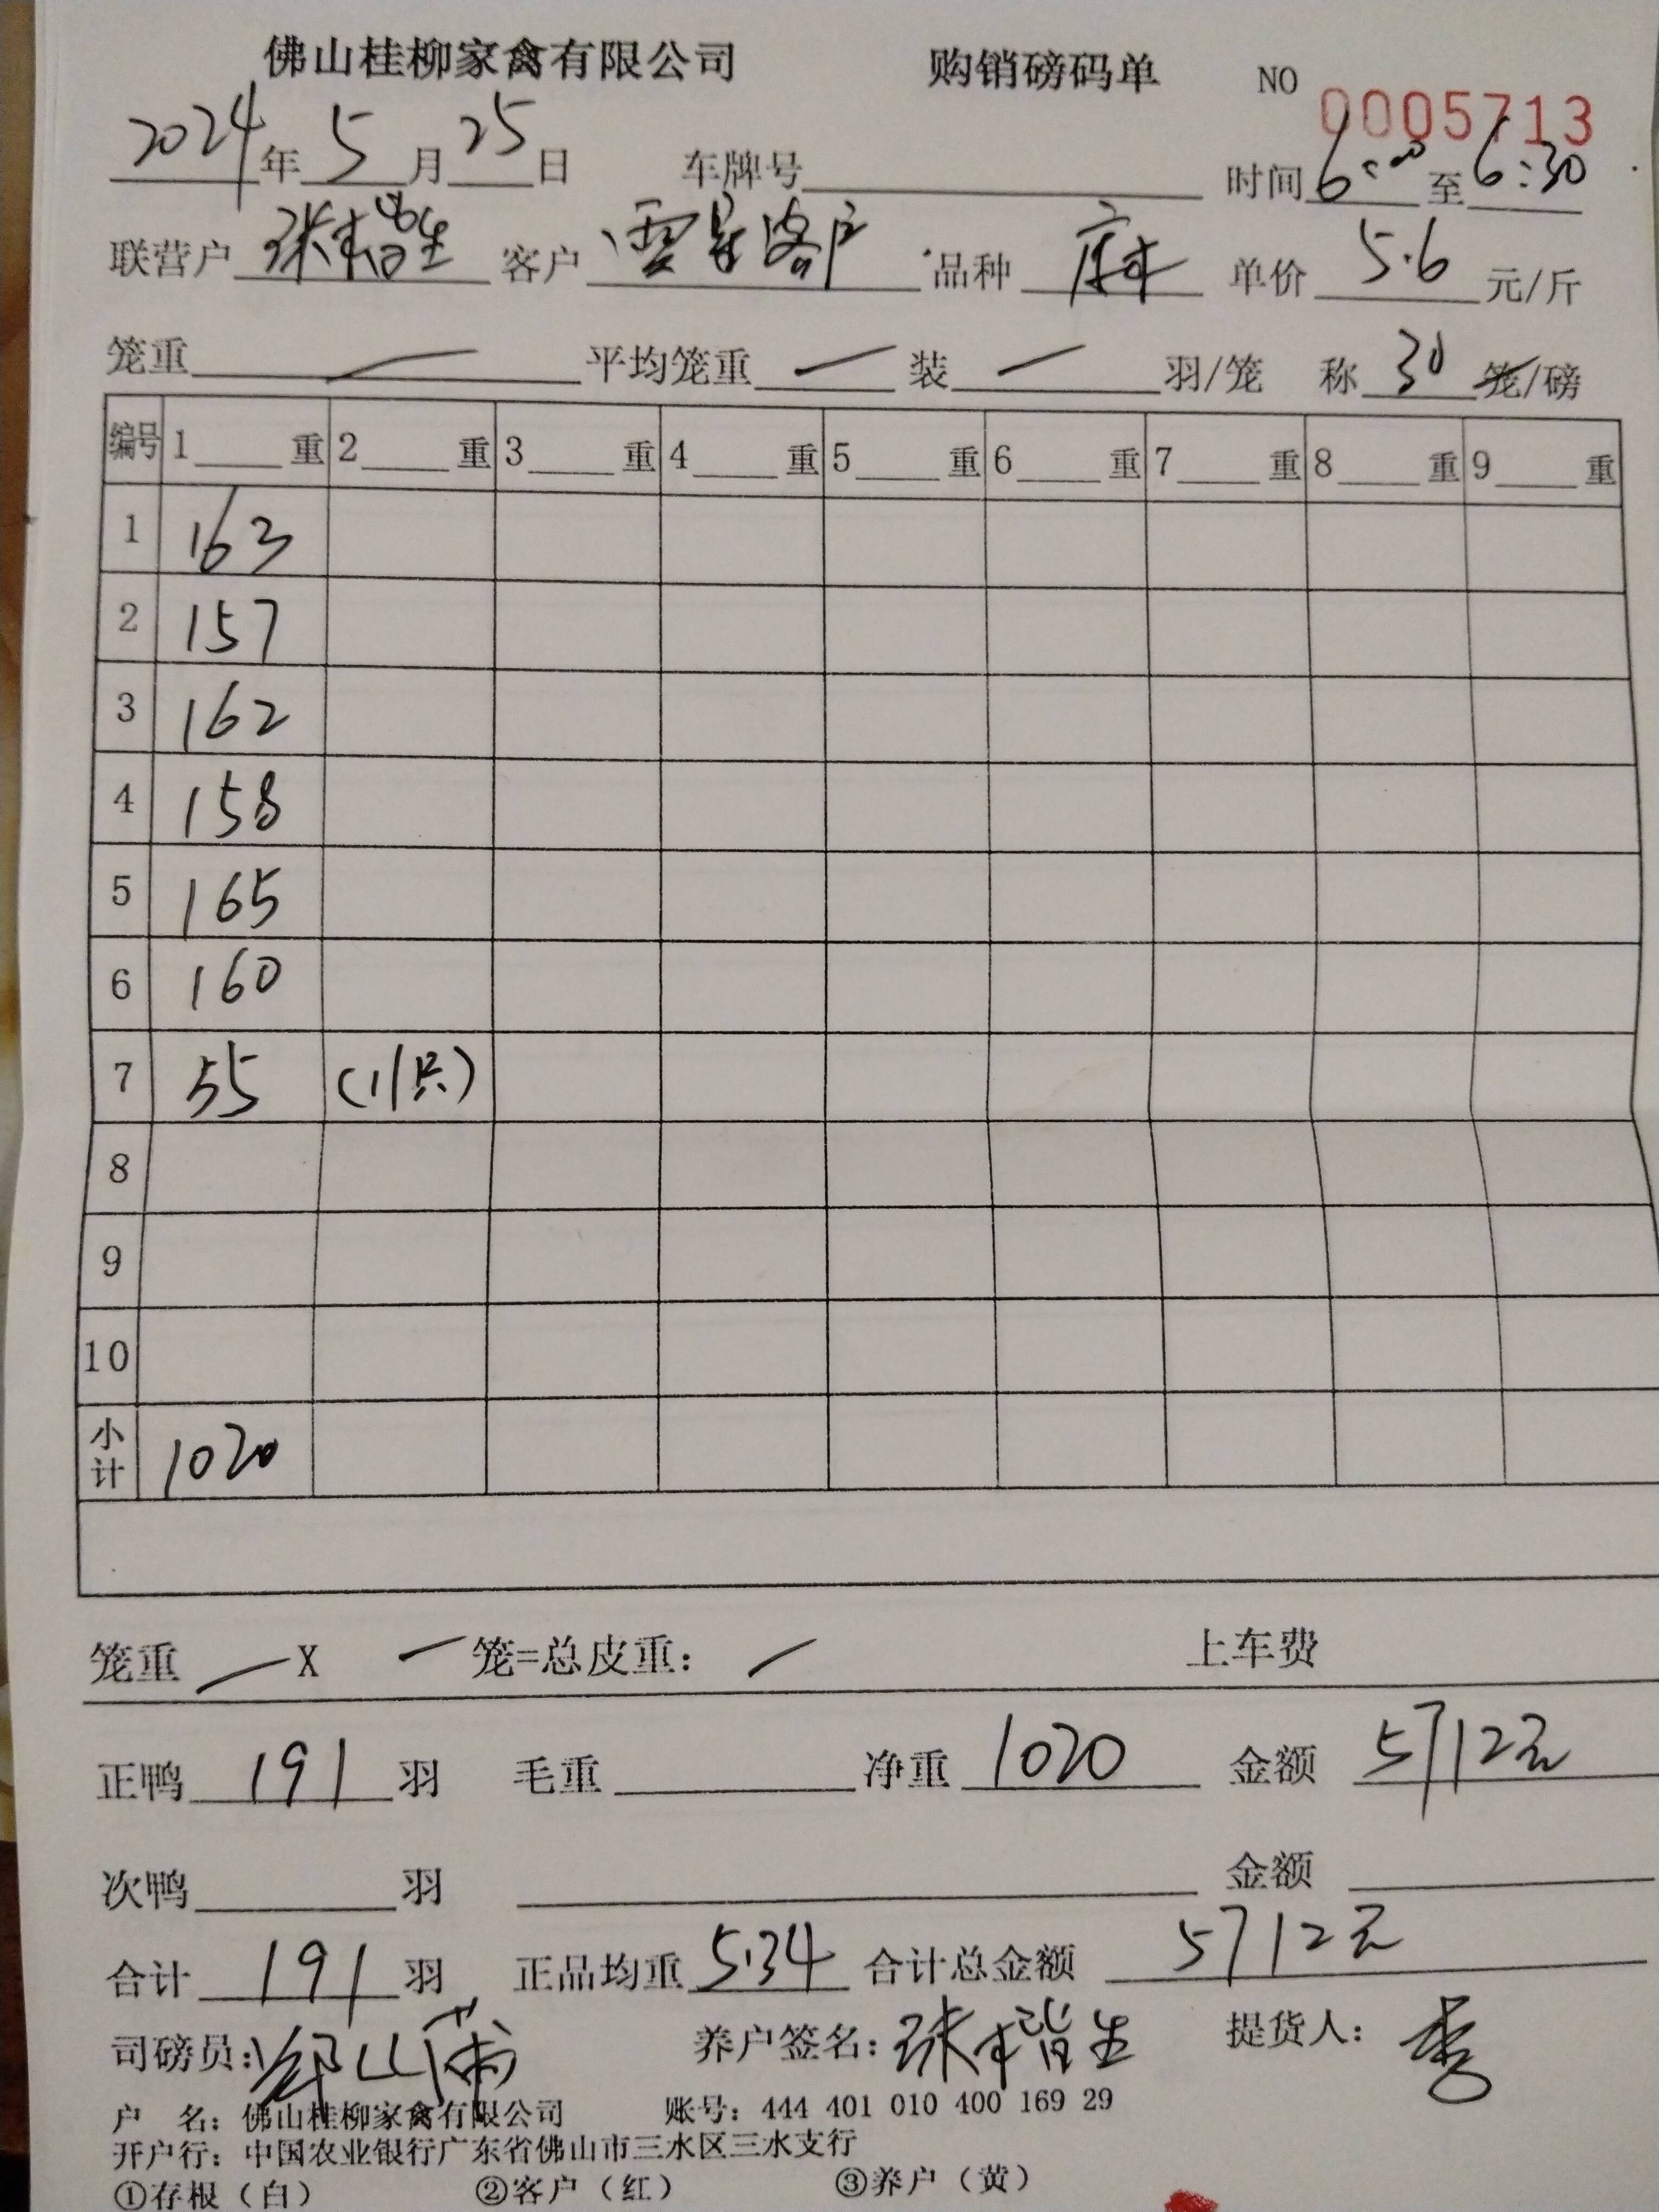 佛山桂柳家禽有限公司 购销磅码单 NO 0005713
2024年5月25日 车牌号 时间6:00至6:30
联营户 张楷生 客户 零星客户 品种 麻 单价 5.6 元/斤
笼重 — 平均笼重 — 装 — 羽/笼 称 30 笼/磅
编号 1 重 2 重 3 重 4 重 5 重 6 重 7 重 8 重 9 重
1 163
2 157
3 162
4 158
5 165
6 160
7 55 (11只)
8
9
10
小计 1020
笼重 — X — 笼=总皮重: — 上车费
正鸭 191 羽 毛重 净重 1020 金额 5712元
次鸭 羽 金额
合计 191 羽 正品均重 5.34 合计总金额 5712元
司磅员: 养户签名: 张楷生 提货人: 李
户 名: 佛山桂柳家禽有限公司 账号: 444 401 010 400 169 29
开户行: 中国农业银行广东省佛山市三水区三水支行
①存根(白) ②客户(红) ③养户(黄)